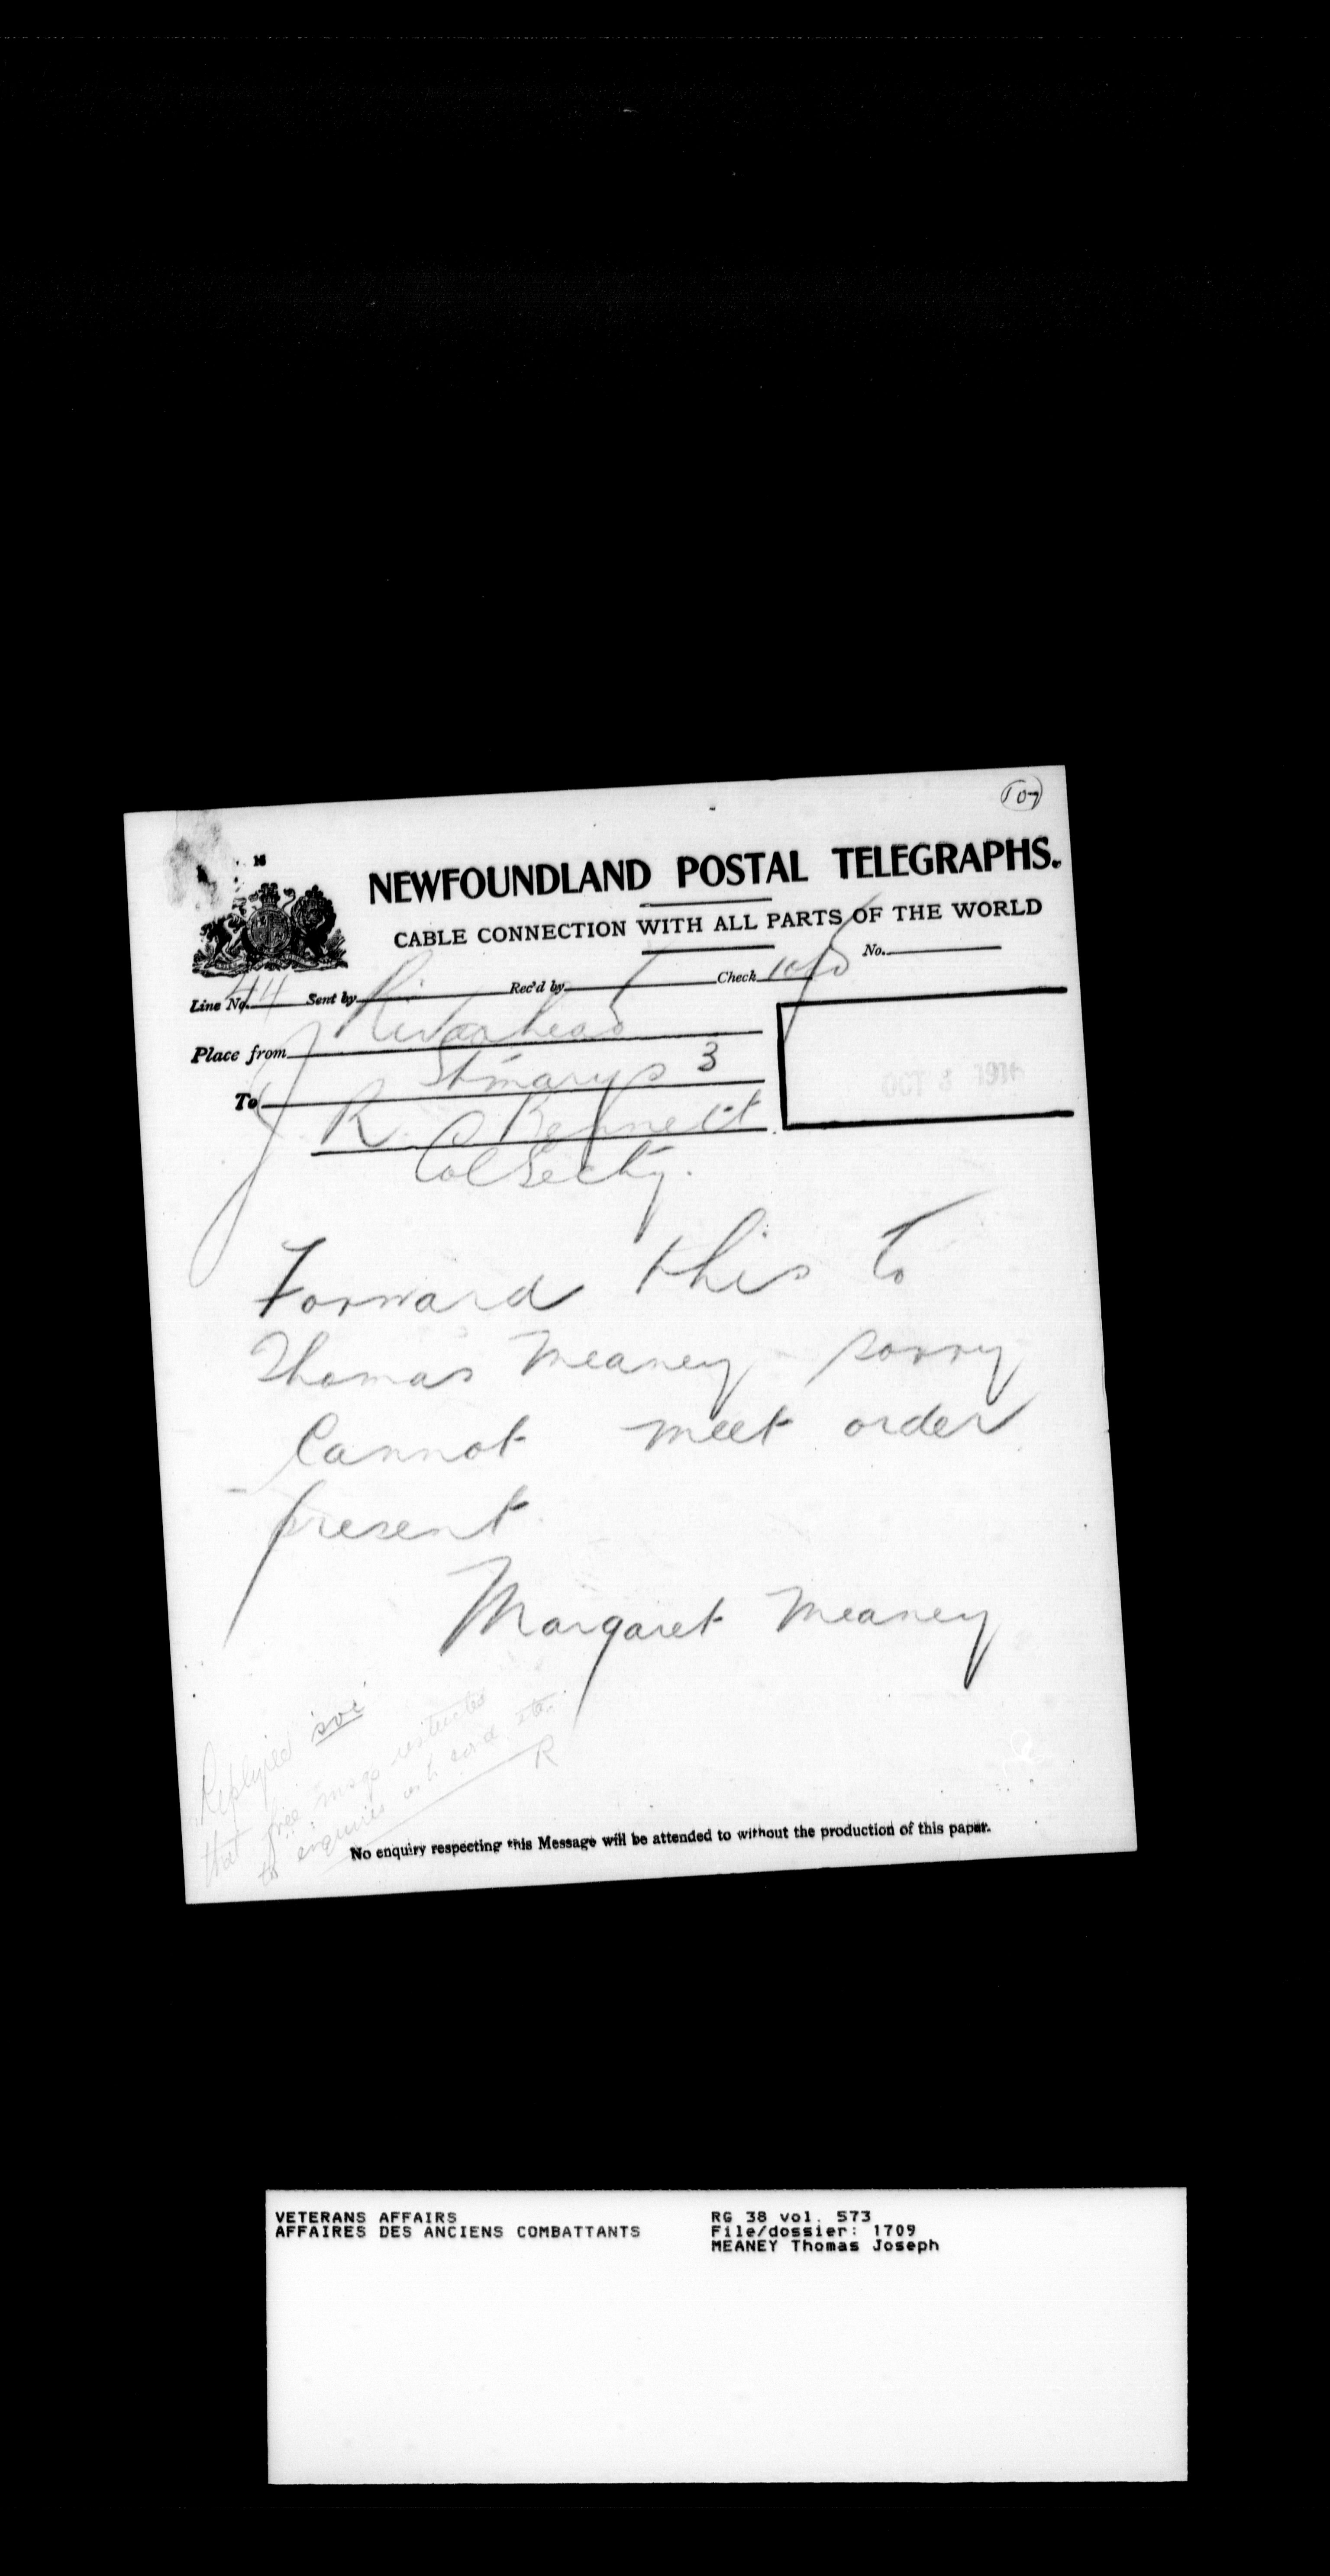 107
16
NEWFOUNDLAND POSTAL TELEGRAPHS.
CABLE CONNECTION WITH ALL PARTS OF THE WORLD
Line No. 44 Sent by Rec'd by Check No.
Place from Riverhead
St marys 3
To
R. Bennett
Col Secty.
OCT 3 1916
Forward this to
Thomas Meaney sorry
Cannot meet order
present
Margaret Meaney
Replyed
that free msgs restricted
to enquiries
R
No enquiry respecting this Message will be attended to without the production of this paper.
VETERANS AFFAIRS
AFFAIRES DES ANCIENS COMBATTANTS
RG 38 vol. 573
File/dossier: 1709
MEANEY Thomas Joseph